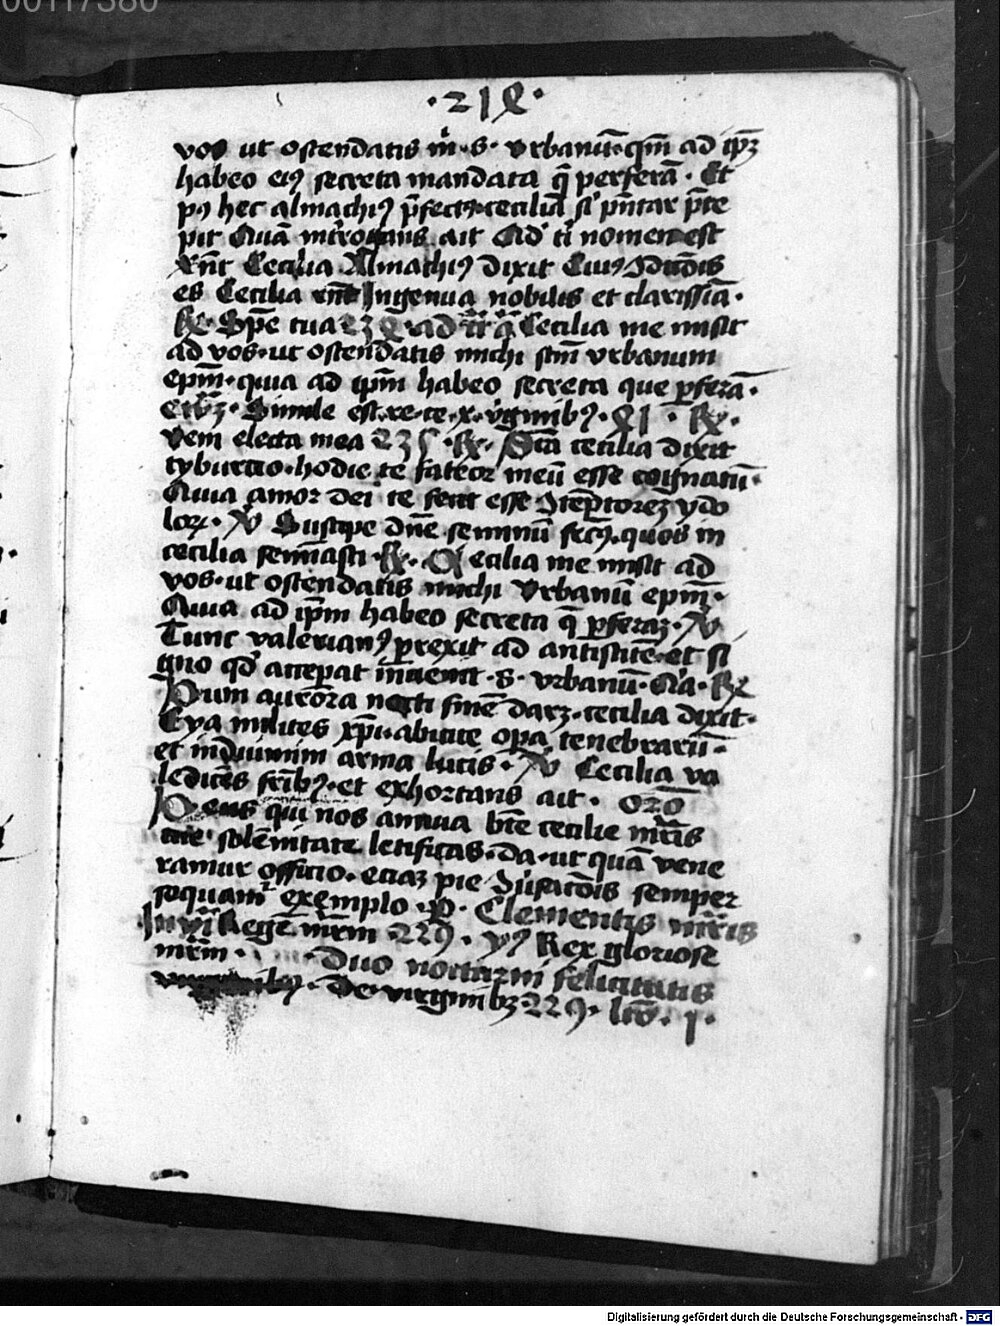 00117380
·21ꝭ·
vos ut ostendatis m̊·S· vrbanū·qm̄ ad ip̄ꝫ
habeo eiꝰ secreta mandata q̄ perferā· Et
pꝰ hec almachiꝰ p̄fectꝰ ceciliā si p̄ntar p̄ce
pit Quā ait Qd' ti nomen est
Rn̄t Cecilia Almachiꝰ dixit Cuiꝰ ꝯdicōis
es Cecilia rn̄t Ingenua nobilis et clarissiā·
℟· Spē tua ad Cecilia me misit
ad vos·ut ostendatis michi scm̄ vrbanum
epm̄·quia ad ipm̄ habeo secreta que ꝑferā·
Simile est·re·ce·x·v̄ginibꝰ· ℟·
Veni electa mea 235 ·℟· Scā cecilia dixit
tyburcio·hodie te fateor meū esse cognatū·
Quia amor dei te fecit esse ꝯtēptoreꝫ ydo
loꝝ· ℣ Suscipe dn̄e seminū frc̄ꝰ·quos in
cecilia semīasti·℟· Cecilia me misit ad
vos·ut ostendatis michi Vrbanū epm̄·
Quia ad ipm̄ habeo secreta q̄ ꝑferaꝫ· ℣
Tunc valerianꝰ perrexit ad antistitē·et si
gno qd' acceperat īuenit ·S· vrbanū· Q̄a· ℟
Dum aurora nocti finē darꝫ·cecilia dixit·
Eya milites xp̄i·abicite opa tenebrarū·
et induimini arma lucis· ℣ Cecilia va
ledicēs frībꝰ·et exhortans ait· oro
Deus qui nos annua bt̄e cecilie mr̄is
tue solēnitate letificas·da·ut quā vene
ramur officio·eciaꝫ pie ꝯu̇sacōis semper
sequam̄ exemplo·ꝑ· Clementis mr̄is
Inui Regē mr̄m 229· Rex gloriose
mr̄m· Duo nocturni felicitatis
De virginibꝫ 229·